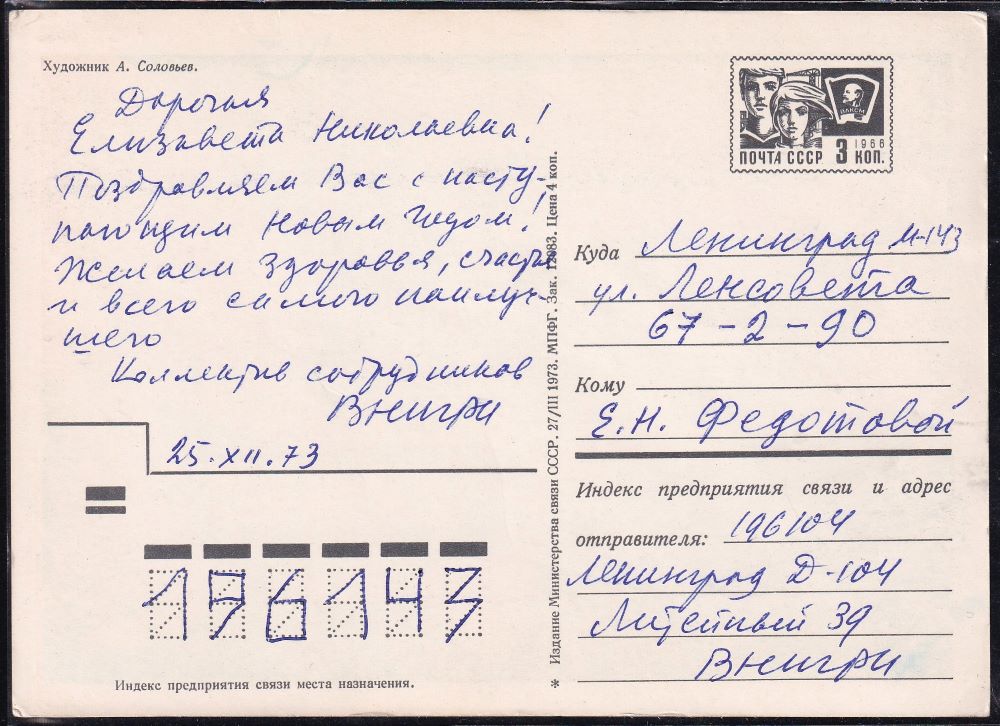 Художник А. Соловьев.
Дорогая
Елизавета Николаевна!
Поздравляем Вас с насту-
пающим Новым годом!
Желаем здоровья, счастья
и всего самого наилуч-
шего
Коллектив сотрудников
ВНИГРИ
25.XII.73
196143
Индекс предприятия связи места назначения.
* Издание Министерства связи СССР. 27/III 1973. МПФГ. Зак. 12083. Цена 4 коп.
ВЛКСМ
1966
ПОЧТА СССР 3 КОП.
Куда Ленинград М-143
ул. Ленсовета
67-2-90
Кому
Е.Н. Федотовой
Индекс предприятия связи и адрес
отправителя: 196104
Ленинград Д-104
Литейный 39
ВНИГРИ